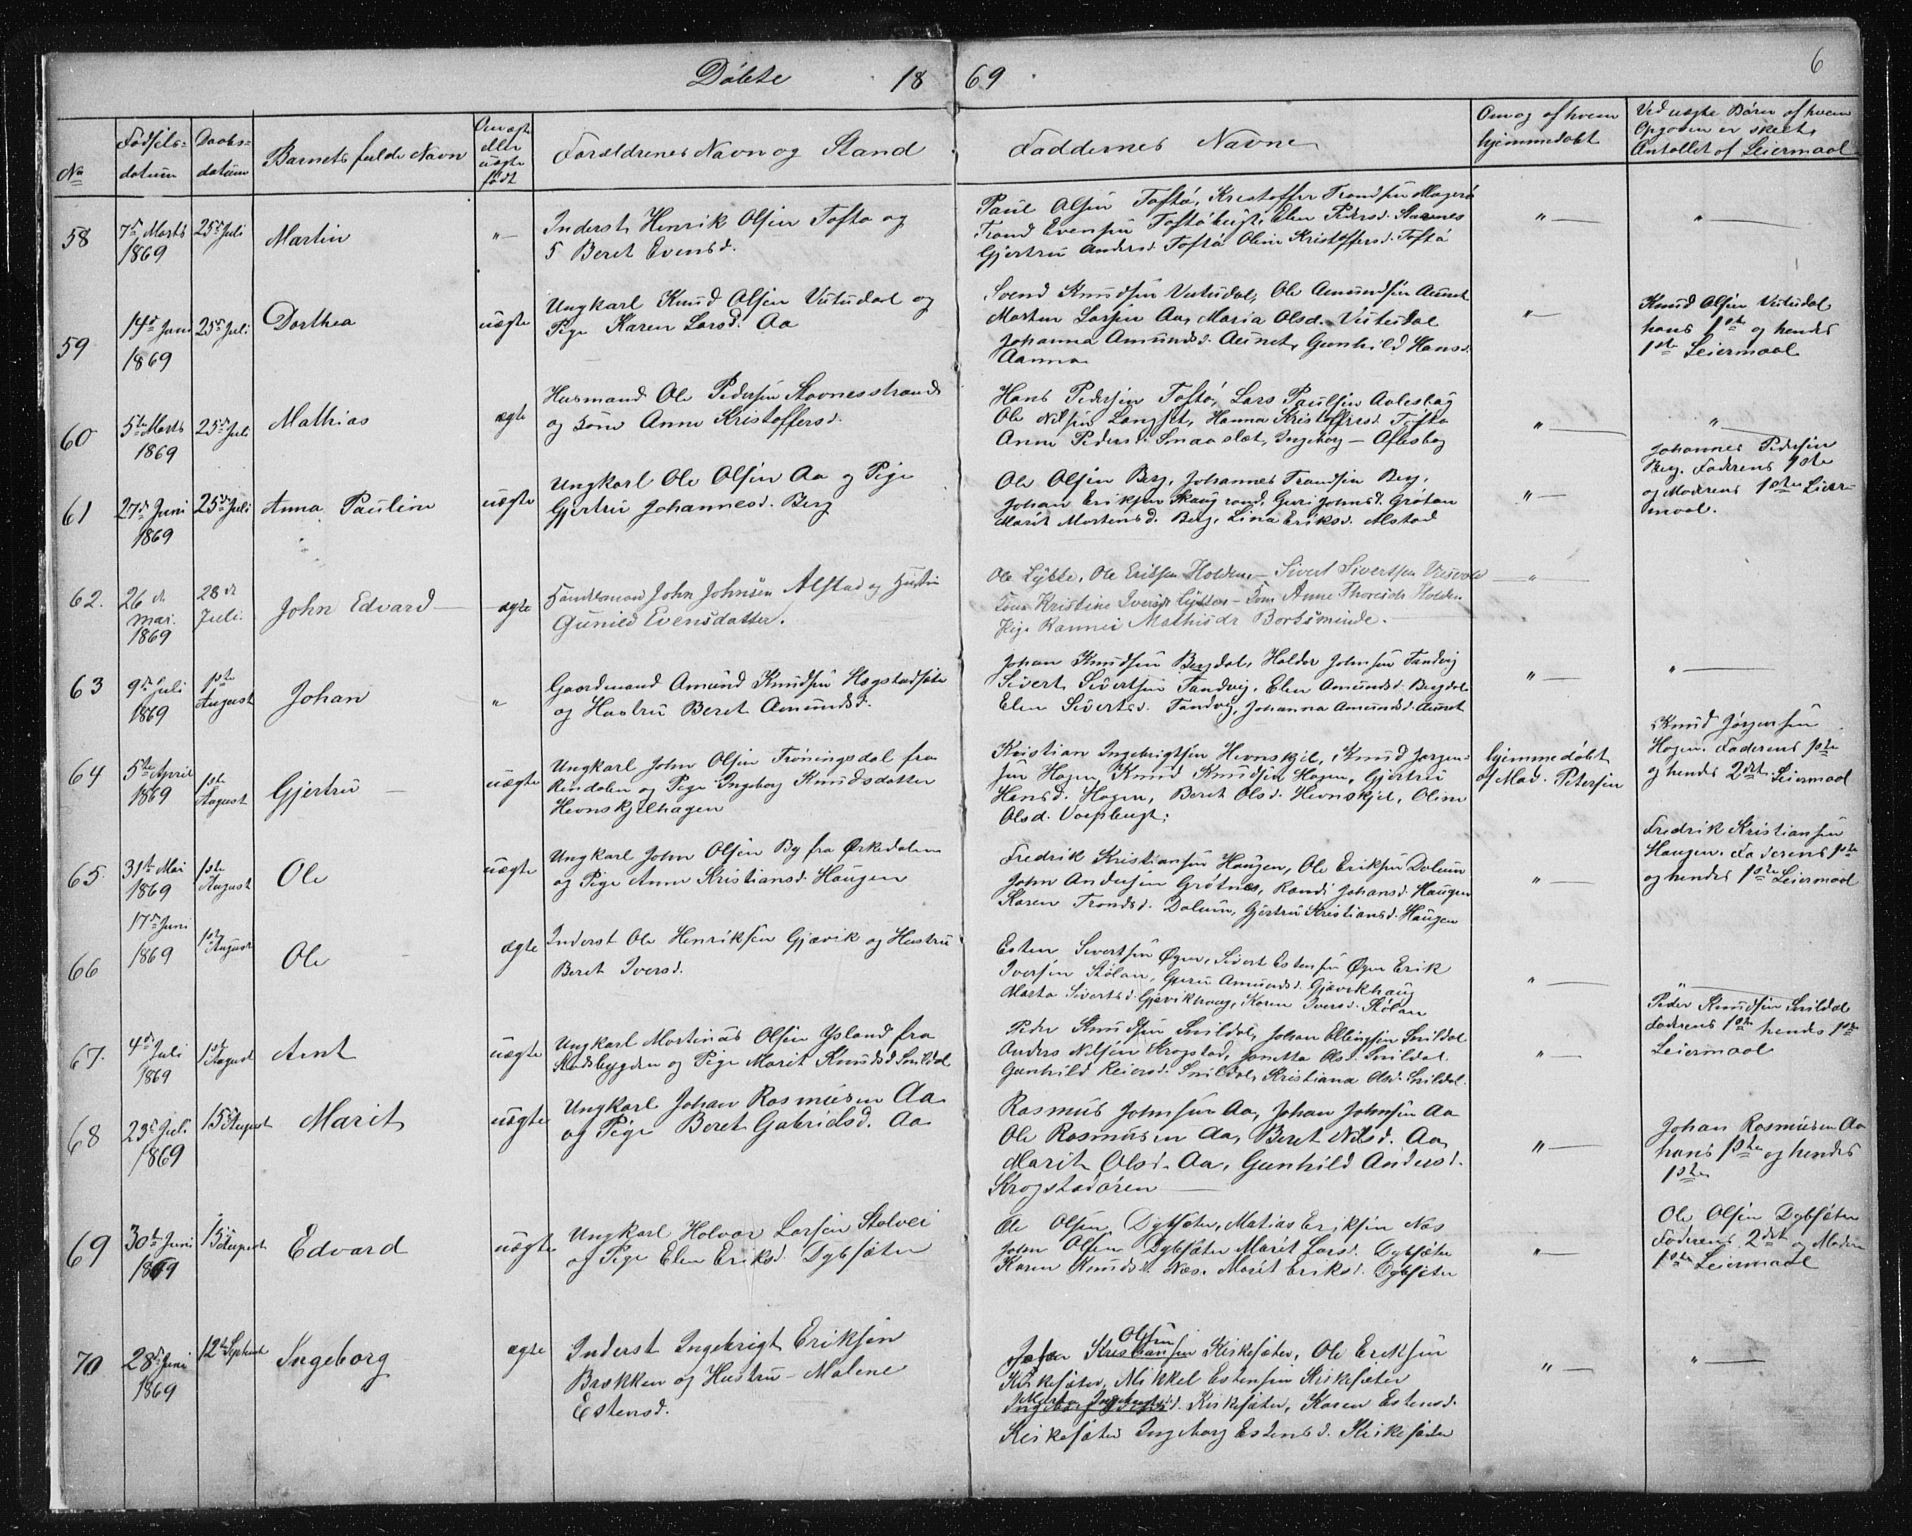 Døbte 18 69
6
No
Fødsels-
datum
Daabs-
datum
Barnets fulde Navn
Om ægte
eller
uægte
født
Forældrenes Navn og Stand
Faddernes Navne
Om og af hvem
hjemmedøbt
Ved uægte Børn af hvem
Opgaven er skeet,
Antallet af Leiermaal
58
7de Marts
1869
25de Juli
Martin
"
Inderst Henrik Olsen Toftø og
Beret Evensd.
Paul Olsen Toftø, Kristoffer Trondsen Magerø
Trond Evensen Toftøbugt, Elen Pedersd. Stavnes
Gjertru Andersd. Toftø Oline Kristoffersd. Toftø
"
"
59
14de Juni
1869
25de Juli
Dorthea
uægte
Ungkarl Knud Olsen Vutudal og
Pige Karen Larsd. Aa
Svend Knudsen Vutudal, Ole Amundsen Aunet
Morten Larsen Aa, Maria Olsd. Vutudal
Johanna Amundsd. Aunet, Gunhild Hansd.
Aanna
"
Knud Olsen Vutudal
hans 1ste og hendes
1ste Leiermaal
60
5te Marts
1869
25de Juli
Mathias
ægte
Husmand Ole Pedersen Stavnesstrand
og Kone Anne Kristoffersd.
Hans Pedersen Toftø, Lars Paulsen
Ole Nilsen Langset, Hanna Kristoffersd. Toftø
Anne Pedersd. Smaaslet, Ingeborg —
"
"
61
27de Juni
1869
25de Juli
Anna Pauline
uægte
Ungkarl Ole Olsen Aa og Pige
Gjertru Johannesd. Berg
Ole Olsen Berg, Johannes Trondsen Berg,
Johan Eriksen Skaugrand, Guri Johnsd. Grøtan
Marit Mortensd. Berg, Lina Eriksd. Alstad
"
Johannes Pedersen
Berg. Faderens 1ste
og Moderens 1ste Leier-
maal.
62.
26de
mai.
1869
28de
Juli.
John Edvard
ægte
John Johnsen Alstad og Hustru
Gunild Evensdatter.
Ole Lykke, Ole Eriksen Holden, — Sivert Sivertsen
Kone Kristine Iversdr Lykken — Kone Anne Thoresdr Holden
Pige Rannei Mathisdr Bortsminde.
"
63
9de Juli
1869
1ste
August
Johan
"
Gaardmand Amund Knudsen Hogstadsæter
og Hustru Beret Amundsd.
Johan Knudsen Bergdal, Haldor Johnsen Tandvig
Sivert Sivertsen Tandvig, Elen Amundsd. Bergdal
Elen Sivertsd. Tandvig, Johanna Amundsd. Aunet
"
"
64
5te April
1869
1ste
August
Gjertru
uægte
Ungkarl John Olsen Trøningsdal fra
Rindalen og Pige Ingeborg Knudsdatter
Hevnskjelhagen
Kristian Ingebrigtsen Hevnskjel, Knud Jørgen-
sen Hagen, Knud Knudsen Hagen, Gjertru
Hansd. Hagen, Beret Olsd. Hevnskjel, Oline
Olsd.
hjemmedøbt
af Mad. Petersen
Knud Jørgensen
Hagen. Faderens 1ste
og hendes 2det Leiermaal
65.
31te Mai
1869
1ste
August
Ole
uægte
Ungkarl John Olsen By fra Ørkedalen
og Pige Anne Kristiansd. Haugen
Fredrik Kristiansen Haugen, Ole Eriksen Dalum
John Andersen Grøtnes, Randi Johansd. Haugen
Karen Trondsd. Dalum, Gjertru Kristiansd. Haugen
"
Fredrik Kristiansen
Haugen. Faderens 1ste
og hendes 1ste Leiermaal
66
17de Juni
1869
1ste
August
Ole
ægte
Inderst Ole Henriksen Gjævik og Hustru
Beret Iversd.
Esten Sivertsen Øyen, Sivert Estensen Øyen Erik
Iversen Stølan, Guru Amundsd. Gjævikhaug
Marta Sivertsd. Gjævikhaug, Karen Iversd. Stølan
"
"
67.
4de Juli
1869
1ste August
Arnt
uægte
Ungkarl Martinus Olsen Ysland fra
Stadsbygden og Pige Marit Knudsd. Snildal
Peder Knudsen Snildal, Johan Ellingsen Snildal
Anders Nilsen Krogstad, Janetta Olsd. Snildal.
Gunhild Reiersd. Snildal, Kristiana Olsd. Snildal.
"
Peder Knudsen Snildal
Faderens 1ste hendes 1ste
Leiermaal
68
23de Juli
1869
15de August
Marit
uægte
Ungkarl Johan Rasmusen Aa
og Pige Beret Gabrielsd. Aa
Rasmus Johnsen Aa, Johan Johnsen Aa
Ole Rasmusen Aa, Beret Nilsd. Aa,
Marit Olsd. Aa, Gunhild Andersd.
Krogstadøren
"
Johan Rasmusen Aa
hans 1ste og hendes
1ste
69
30te Juni
1869
15de August
Edvard
uægte
Ungkarl Halvor Larsen Stolvei
og Pige Elen Eriksd. Dybsæter
Ole Olsen Dybsæter, Matias Eriksen Næs
John Olsen Dybsæter Marit Larsd. Dybsæter
Karen Knudsd. Næs. Marit Eriksd. Dybsæter
"
Ole Olsen Dybsæter
Faderens 2det og Moderens
1ste Leiermaal
70
28de Juni
1869
12te September
Ingeborg
ægte
Inderst Ingebrigt Eriksen
Brækken og Hustru — Malene
Estensd.
Olsen
Johan Kristiansen Kirkesæter, Ole Eriksen
Kirkesæter, Mikkel Estensen Kirkesæter
Kirkesæter, Karen Estensd.
Kirkesæter Ingeborg Estensd. Kirkesæter
"
"